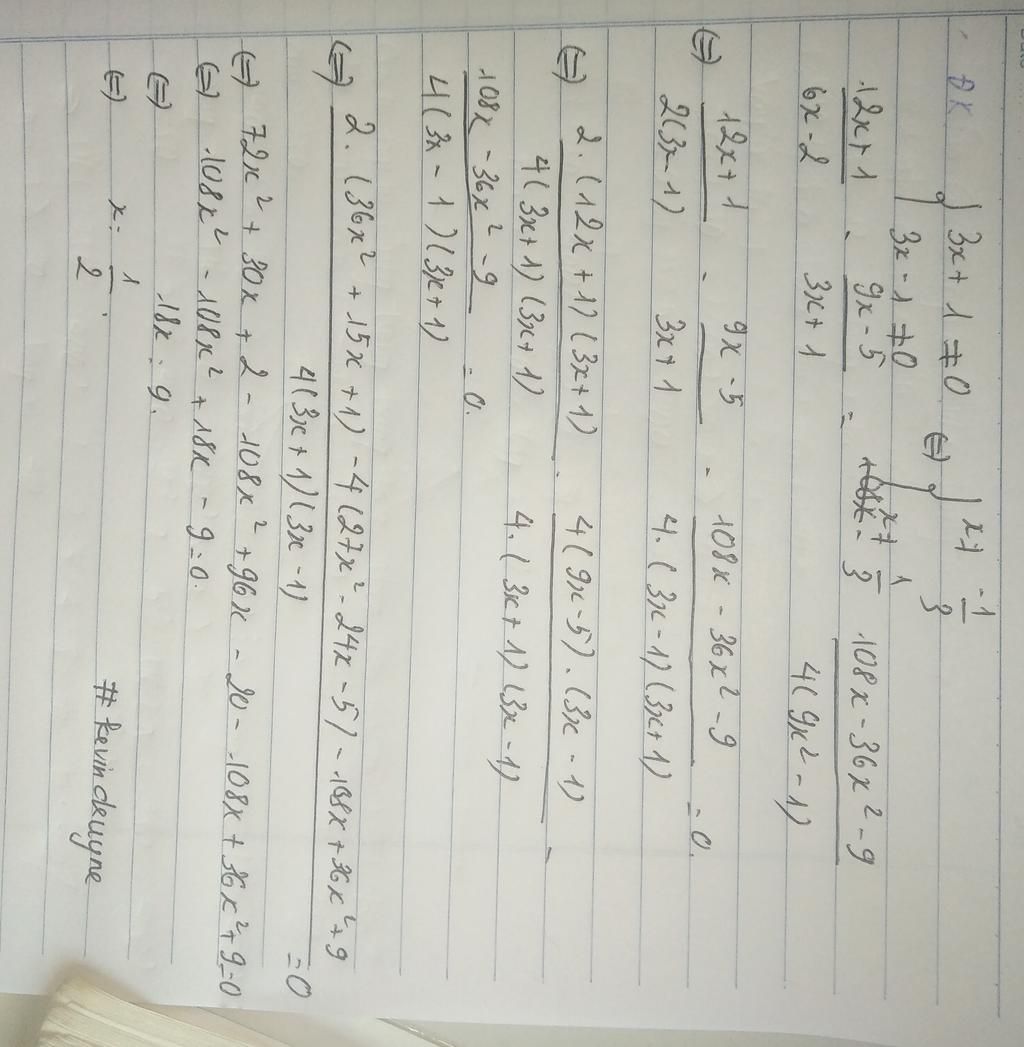 ĐK { 3x + 1 ≠ 0 (=) { x ≠ -1/3
{ 3x - 1 ≠ 0 { x ≠ 1/3
(12x + 1)/(6x - 2) - (9x - 5)/(3x + 1) = (108x - 36x² - 9)/(4(9x² - 1))
(=) (12x + 1)/(2(3x - 1)) - (9x - 5)/(3x + 1) - (108x - 36x² - 9)/(4.(3x - 1)(3x + 1)) = 0.
(=) (2.(12x + 1)(3x + 1))/(4(3x + 1)(3x + 1)) - (4(9x - 5).(3x - 1))/(4.(3x + 1)(3x - 1)) -
(108x - 36x² - 9)/(4(3x - 1)(3x + 1)) = 0.
(=) (2.(36x² + 15x + 1) - 4(27x² - 24x - 5) - 108x + 36x² + 9)/(4(3x + 1)(3x - 1)) = 0
(=) 72x² + 30x + 2 - 108x² + 96x - 20 - 108x + 36x² + 9 = 0
(=) 108x² - 108x² + 18x - 9 = 0.
(=) 18x = 9.
(=) x = 1/2.
# kevindewyne